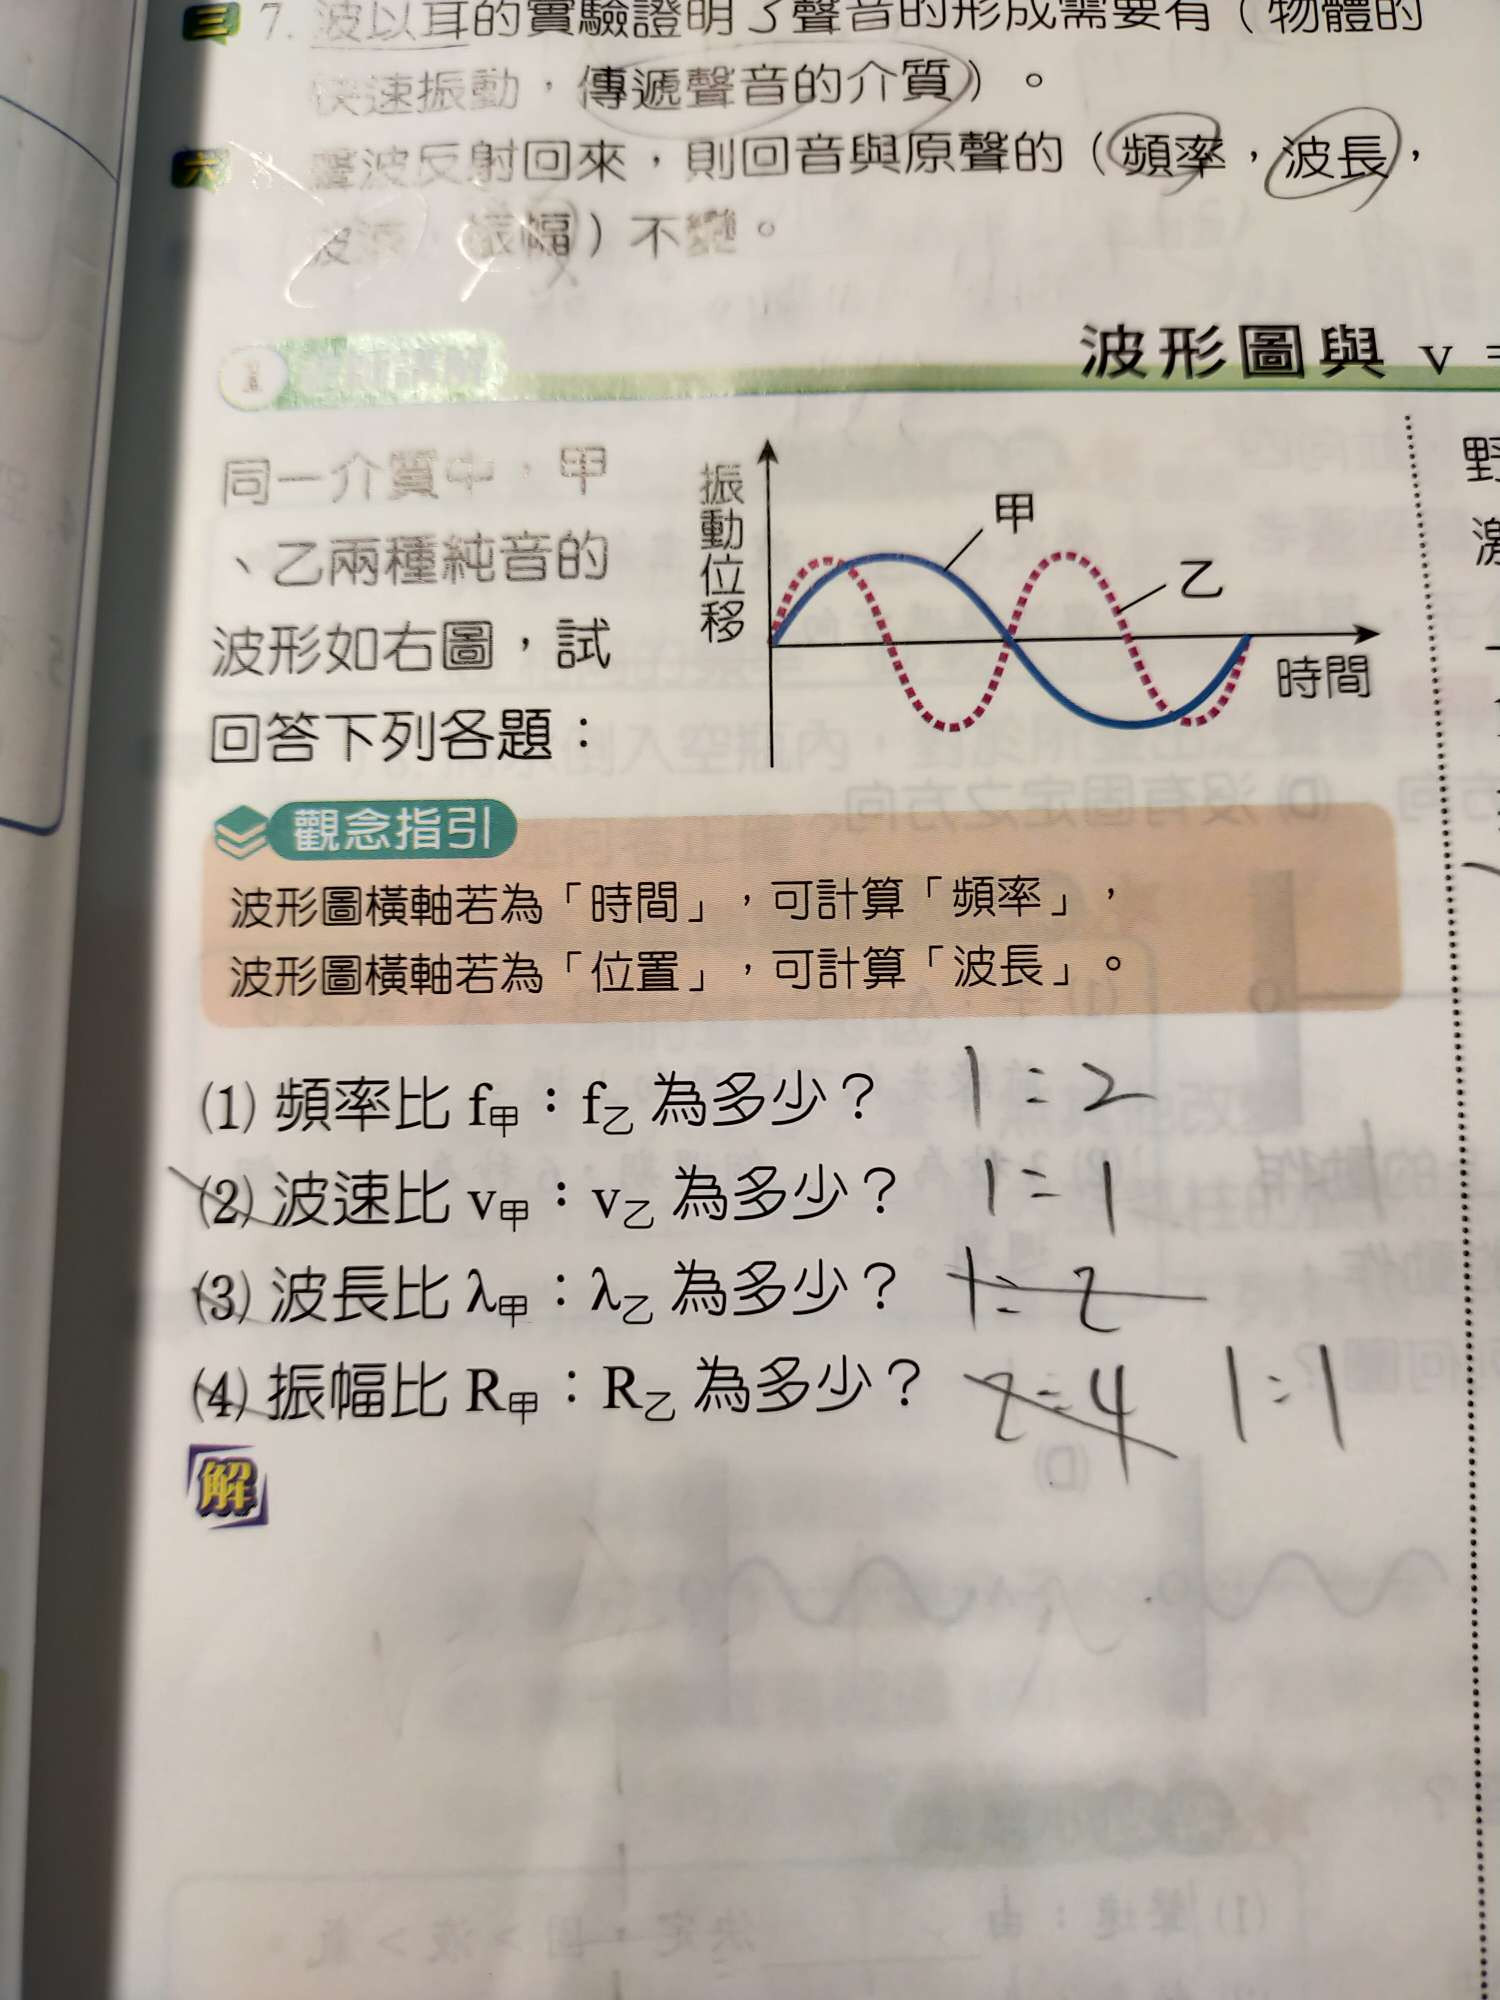 三 7. 波以耳的實驗證明了聲音的形成需要有（物體的
快速振動，傳遞聲音的介質）。
六 8. 聲波反射回來，則回音與原聲的（頻率，波長，
波速，振幅）不變。
1 老師講解
波形圖與 v =
同一介質中，甲
、乙兩種純音的
波形如右圖，試
回答下列各題：
振動位移
甲
乙
時間
觀念指引
波形圖橫軸若為「時間」，可計算「頻率」，
波形圖橫軸若為「位置」，可計算「波長」。
(1) 頻率比 f甲：f乙 為多少？ 1:2
(2) 波速比 v甲：v乙 為多少？ 1:1
(3) 波長比 λ甲：λ乙 為多少？ 1:2
(4) 振幅比 R甲：R乙 為多少？ 2:4 1:1
解
野
激